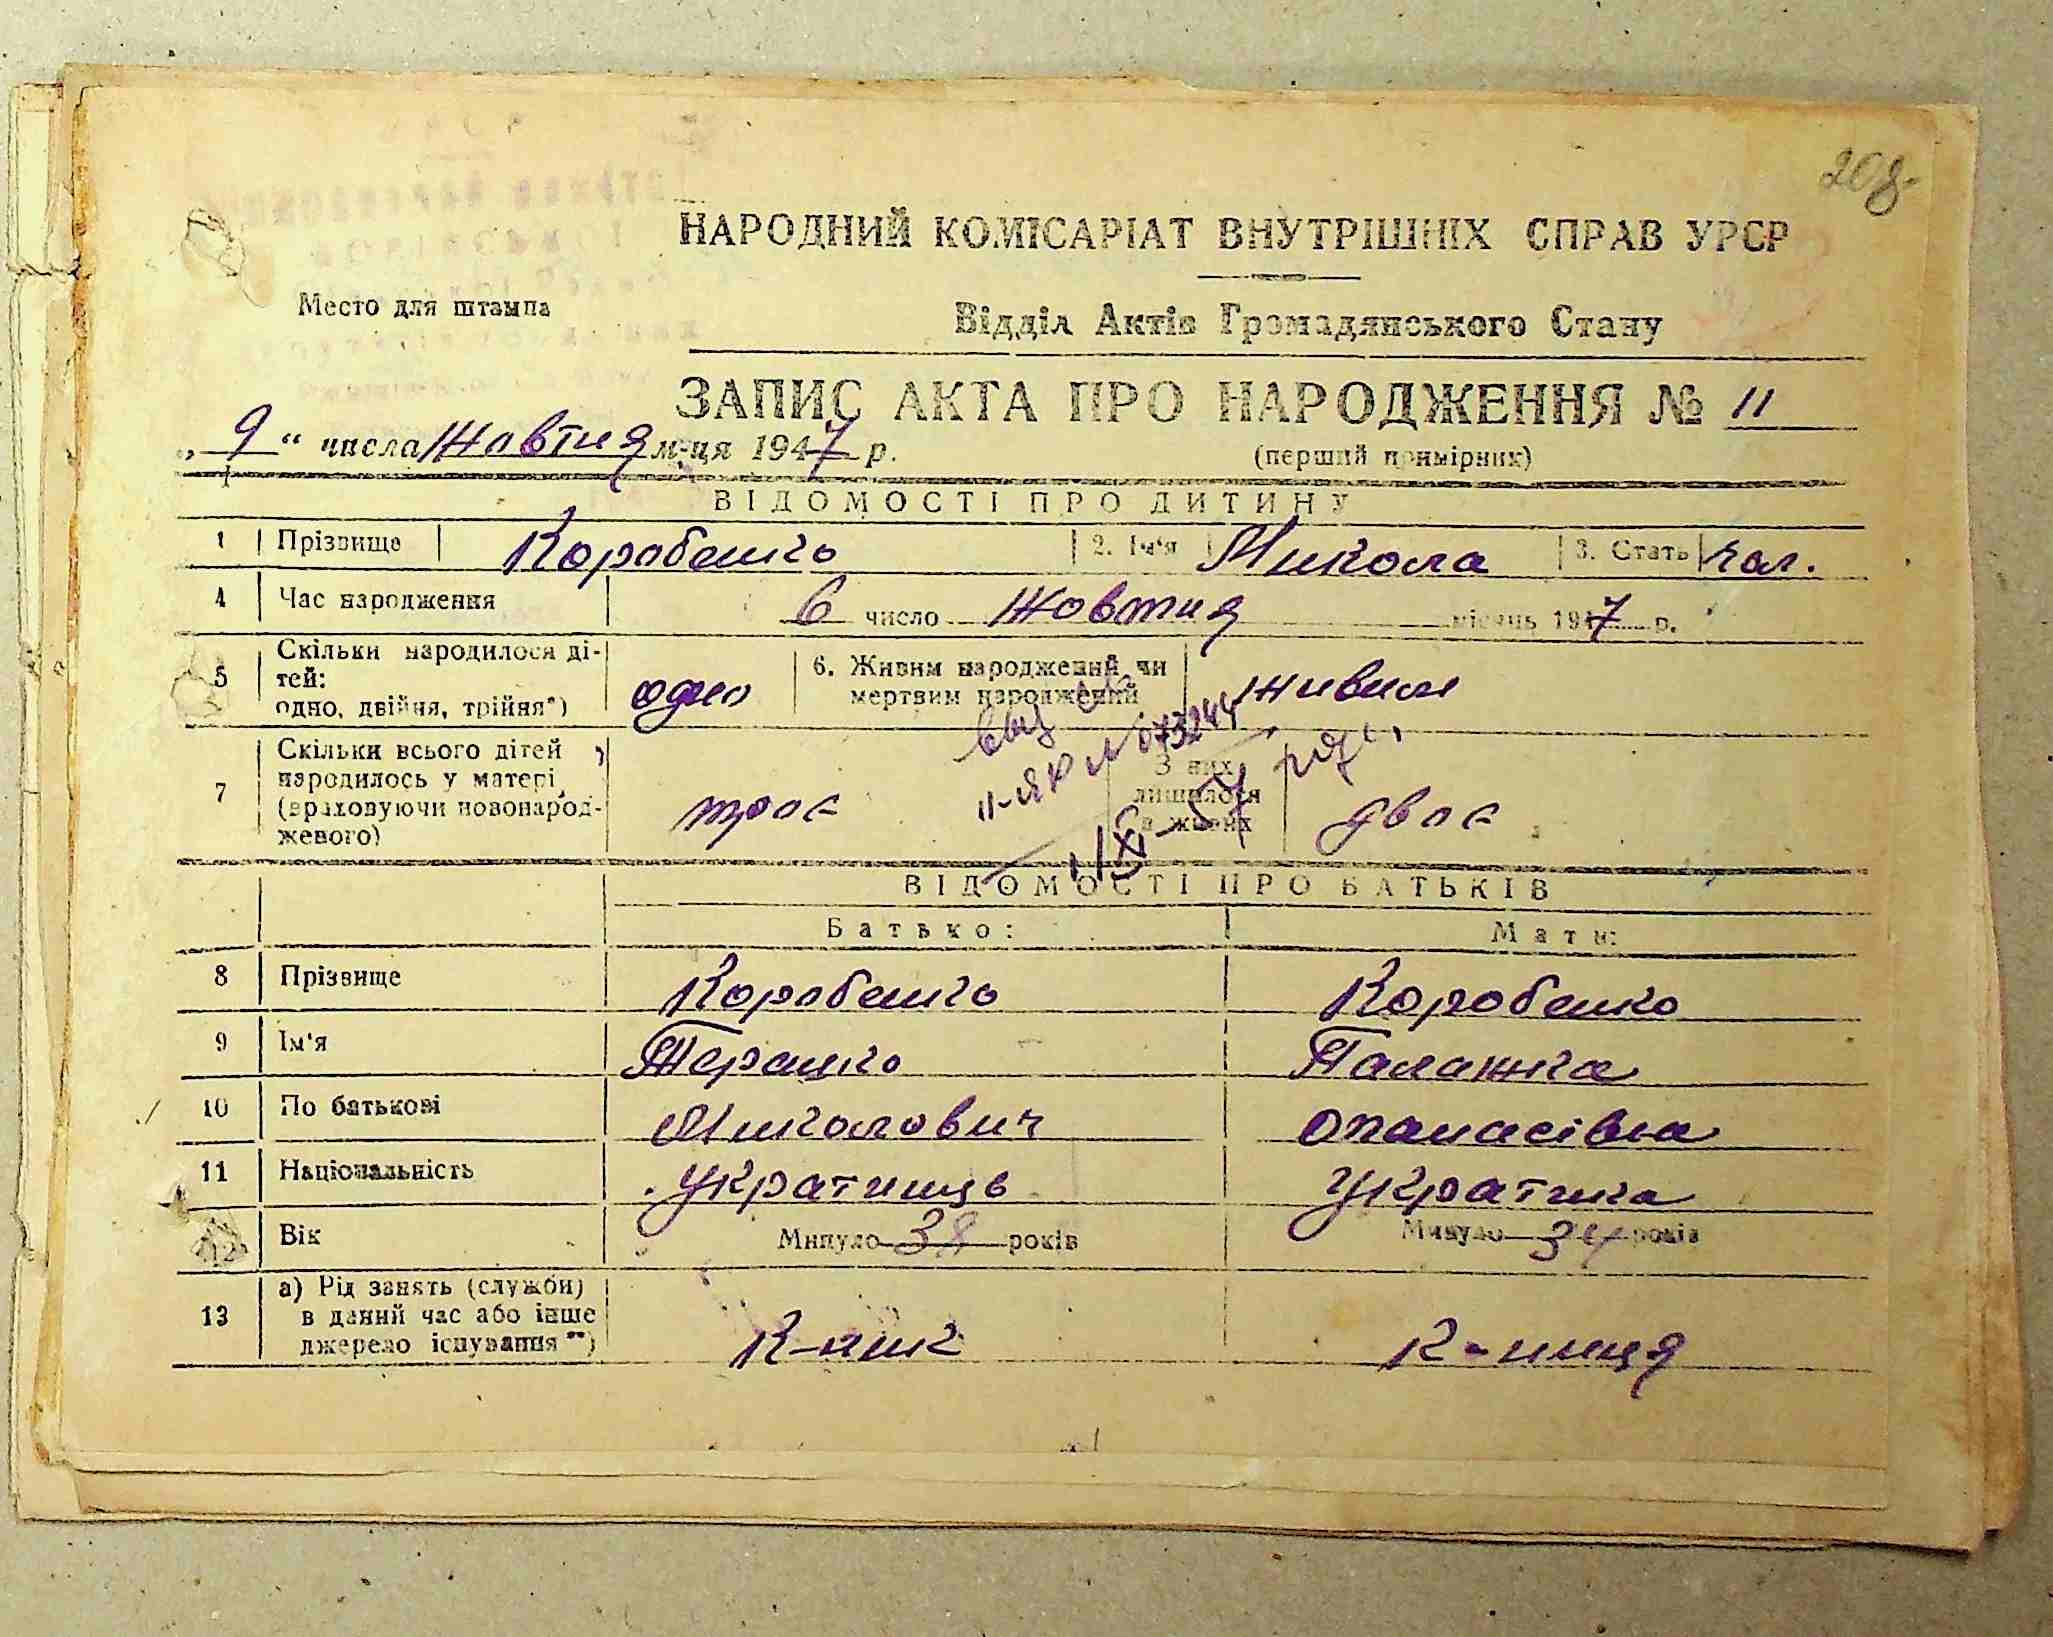 208
НАРОДНИЙ КОМІСАРІАТ ВНУТРІШНІХ СПРАВ УРСР
Место для штампа
Відділ Актів Громадянського Стану
ЗАПИС АКТА ПРО НАРОДЖЕННЯ № 11
„ 9 “ числа Жовтня м-ця 1947 р.
(перший примірник)
ВІДОМОСТІ ПРО ДИТИНУ
1 Прізвище Коробенко 2. Ім'я Микола 3. Стать чол.
4 Час народження 6 число Жовтня місяць 1947 р.
5 Скільки народилося ді-
тей:
одно, двійня, трійня*) одно
6. Живим народжений чи
мертвим народжений живим
7 Скільки всього дітей
народилось у матері
(враховуючи новонарод-
жевого) троє
З них
лишилося
в живих двоє
II-ЯЮ № 073244
1/XI-57
ВІДОМОСТІ ПРО БАТЬКІВ
Батько: Мати:
8 Прізвище Коробенко Коробенко
9 Ім'я Терешко Палажка
10 По батькові Миколович Опанасівна
11 Національність Українць Українка
12 Вік Минуло 38 років Минуло 34 років
13 а) Рід занять (служби)
в даний час або інше
джерело існування**) К-ник К-ниця